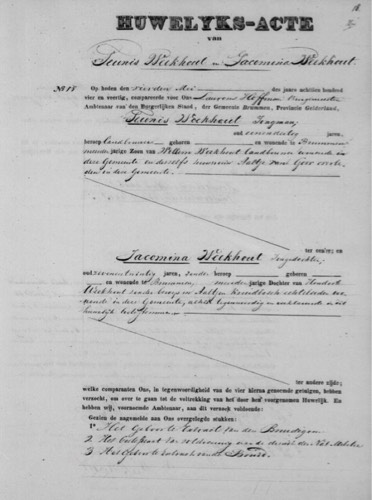 18
HUWELYKS-ACTE
van
Teunis Weekhout en Jacemina Weekhout.
No 18 Op heden den vierden Mei des jaars achttien honderd
vier en veertig, compareerde voor Ons Hoffman Burgemeester
Ambtenaar van den Burgerlijken Stand, der Gemeente Brummen, Provincie Gelderland,
Teunis Weekhout Jongman
oud jaren,
beroep landbouwer geboren en wonende te Brummen
jarige Zoon van Willem Weekhout landbouwer wonende in
deze Gemeente en deszelfs huisvrouw Aaltje van
den in deze Gemeente.
ter eenre; en
Jacemina Weekhout Jongedochter,
oud jaren, zonder beroep geboren
en wonende te Brummen, jarige Dochter van
Weekhout zonder beroep en Aaltjen echtelieden
in deze Gemeente, alhier tegenwoordig en in dit
huwelijk
ter andere zijde;
welke comparanten Ons, in tegenwoordigheid van de vier hierna genoemde getuigen, hebben
verzocht, om over te gaan tot de voltrekking van het door hen voorgenomen Huwelijk. En
hebben wij, voornoemde Ambtenaar, aan dit verzoek voldoende:
Gezien de nagemelde aan Ons overgelegde stukken:
1e Het Geboorte Extract van den Bruidegom
2 Het Certificaat van voldoening aan de dienst der Nat. Militie
3 Het Geboorte Extract van de Bruid.